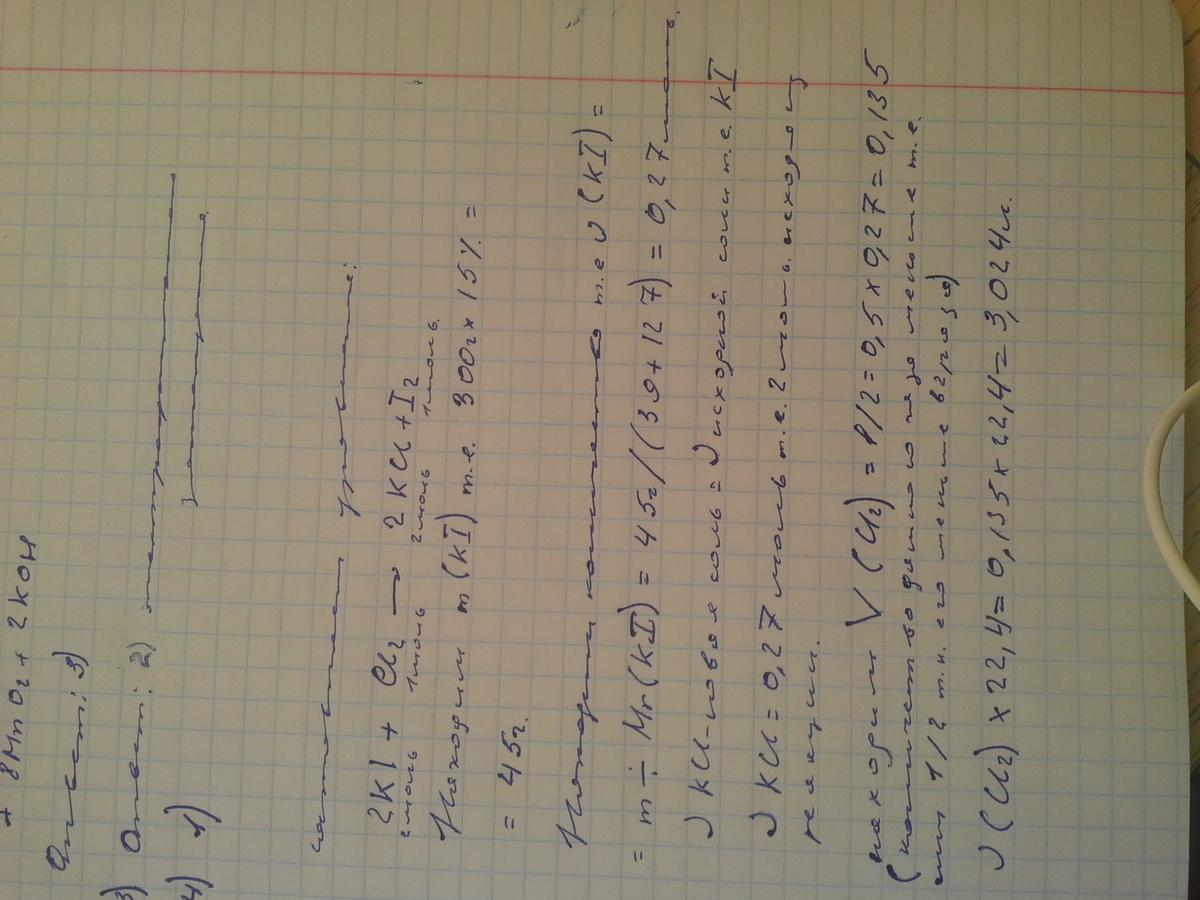 + 8MnO2 + 2KOH
Ответ: 3)
3) Ответ: 2)
4) 1)
2KI + Cl2 → 2KCl + I2
2моль 1моль 2моль 1моль
Находим m(KI) т.е. 300г x 15% =
= 45г.
Находим количество т.е ν(KI) =
= m ÷ Mr(KI) = 45г/(39+127) = 0,27 моль.
ν KCl - новая соль = ν исходной соли т.е. KI
ν KCl = 0,27 моль т.е. 2 моль исходя из
реакции.
находим V(Cl2) = 1/2 = 0,5 x 0,27 = 0,135
(количество данного газа меньше т.е.
1/2 т.к. его меньше в 2 раза)
ν(Cl2) x 22,4 = 0,135 x 22,4 = 3,024л.